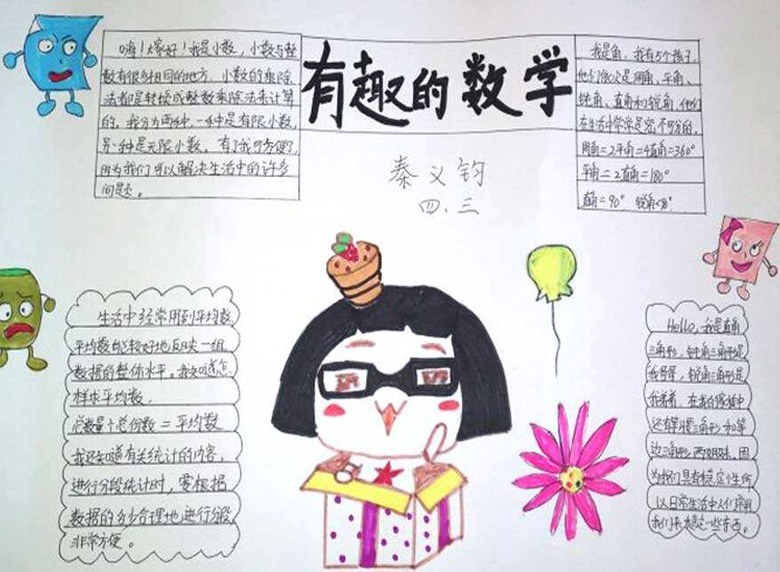 有趣的数学
秦义钧
四、三
嗨!大家好!我是小数,小数与整
数有很多相同的地方。小数的乘除
法都是转换成整数乘除法来计算
的。我分为两种,一种是有限小数,
另一种是无限小数。有了我可方便了,
因为我们可以解决生活中的许多
问题。
我是角,我有5个孩子,
他们依次是周角、平角、
钝角、直角和锐角,他们
在生活中常常是密不可分的,
周角=2平角=4直角=360°
平角=2直角=180°
直角=90° 锐角<90°
生活中经常用到平均数
平均数能较好地反映一组
数据的整体水平。我知道怎
样求平均数,
总数量÷总份数=平均数
我还知道有关统计的内容,
进行分段统计时,要根据
数据的多少合理地进行分段
非常方便。
Hello,我是直角
三角形,钝角三角形是
我哥哥,锐角三角形是
我弟弟,在我的家族中
还有等腰三角形和等
边三角形两姐妹,因
为我们具有稳定性,所
以日常生活中人们常用
我们来稳定一些东西。